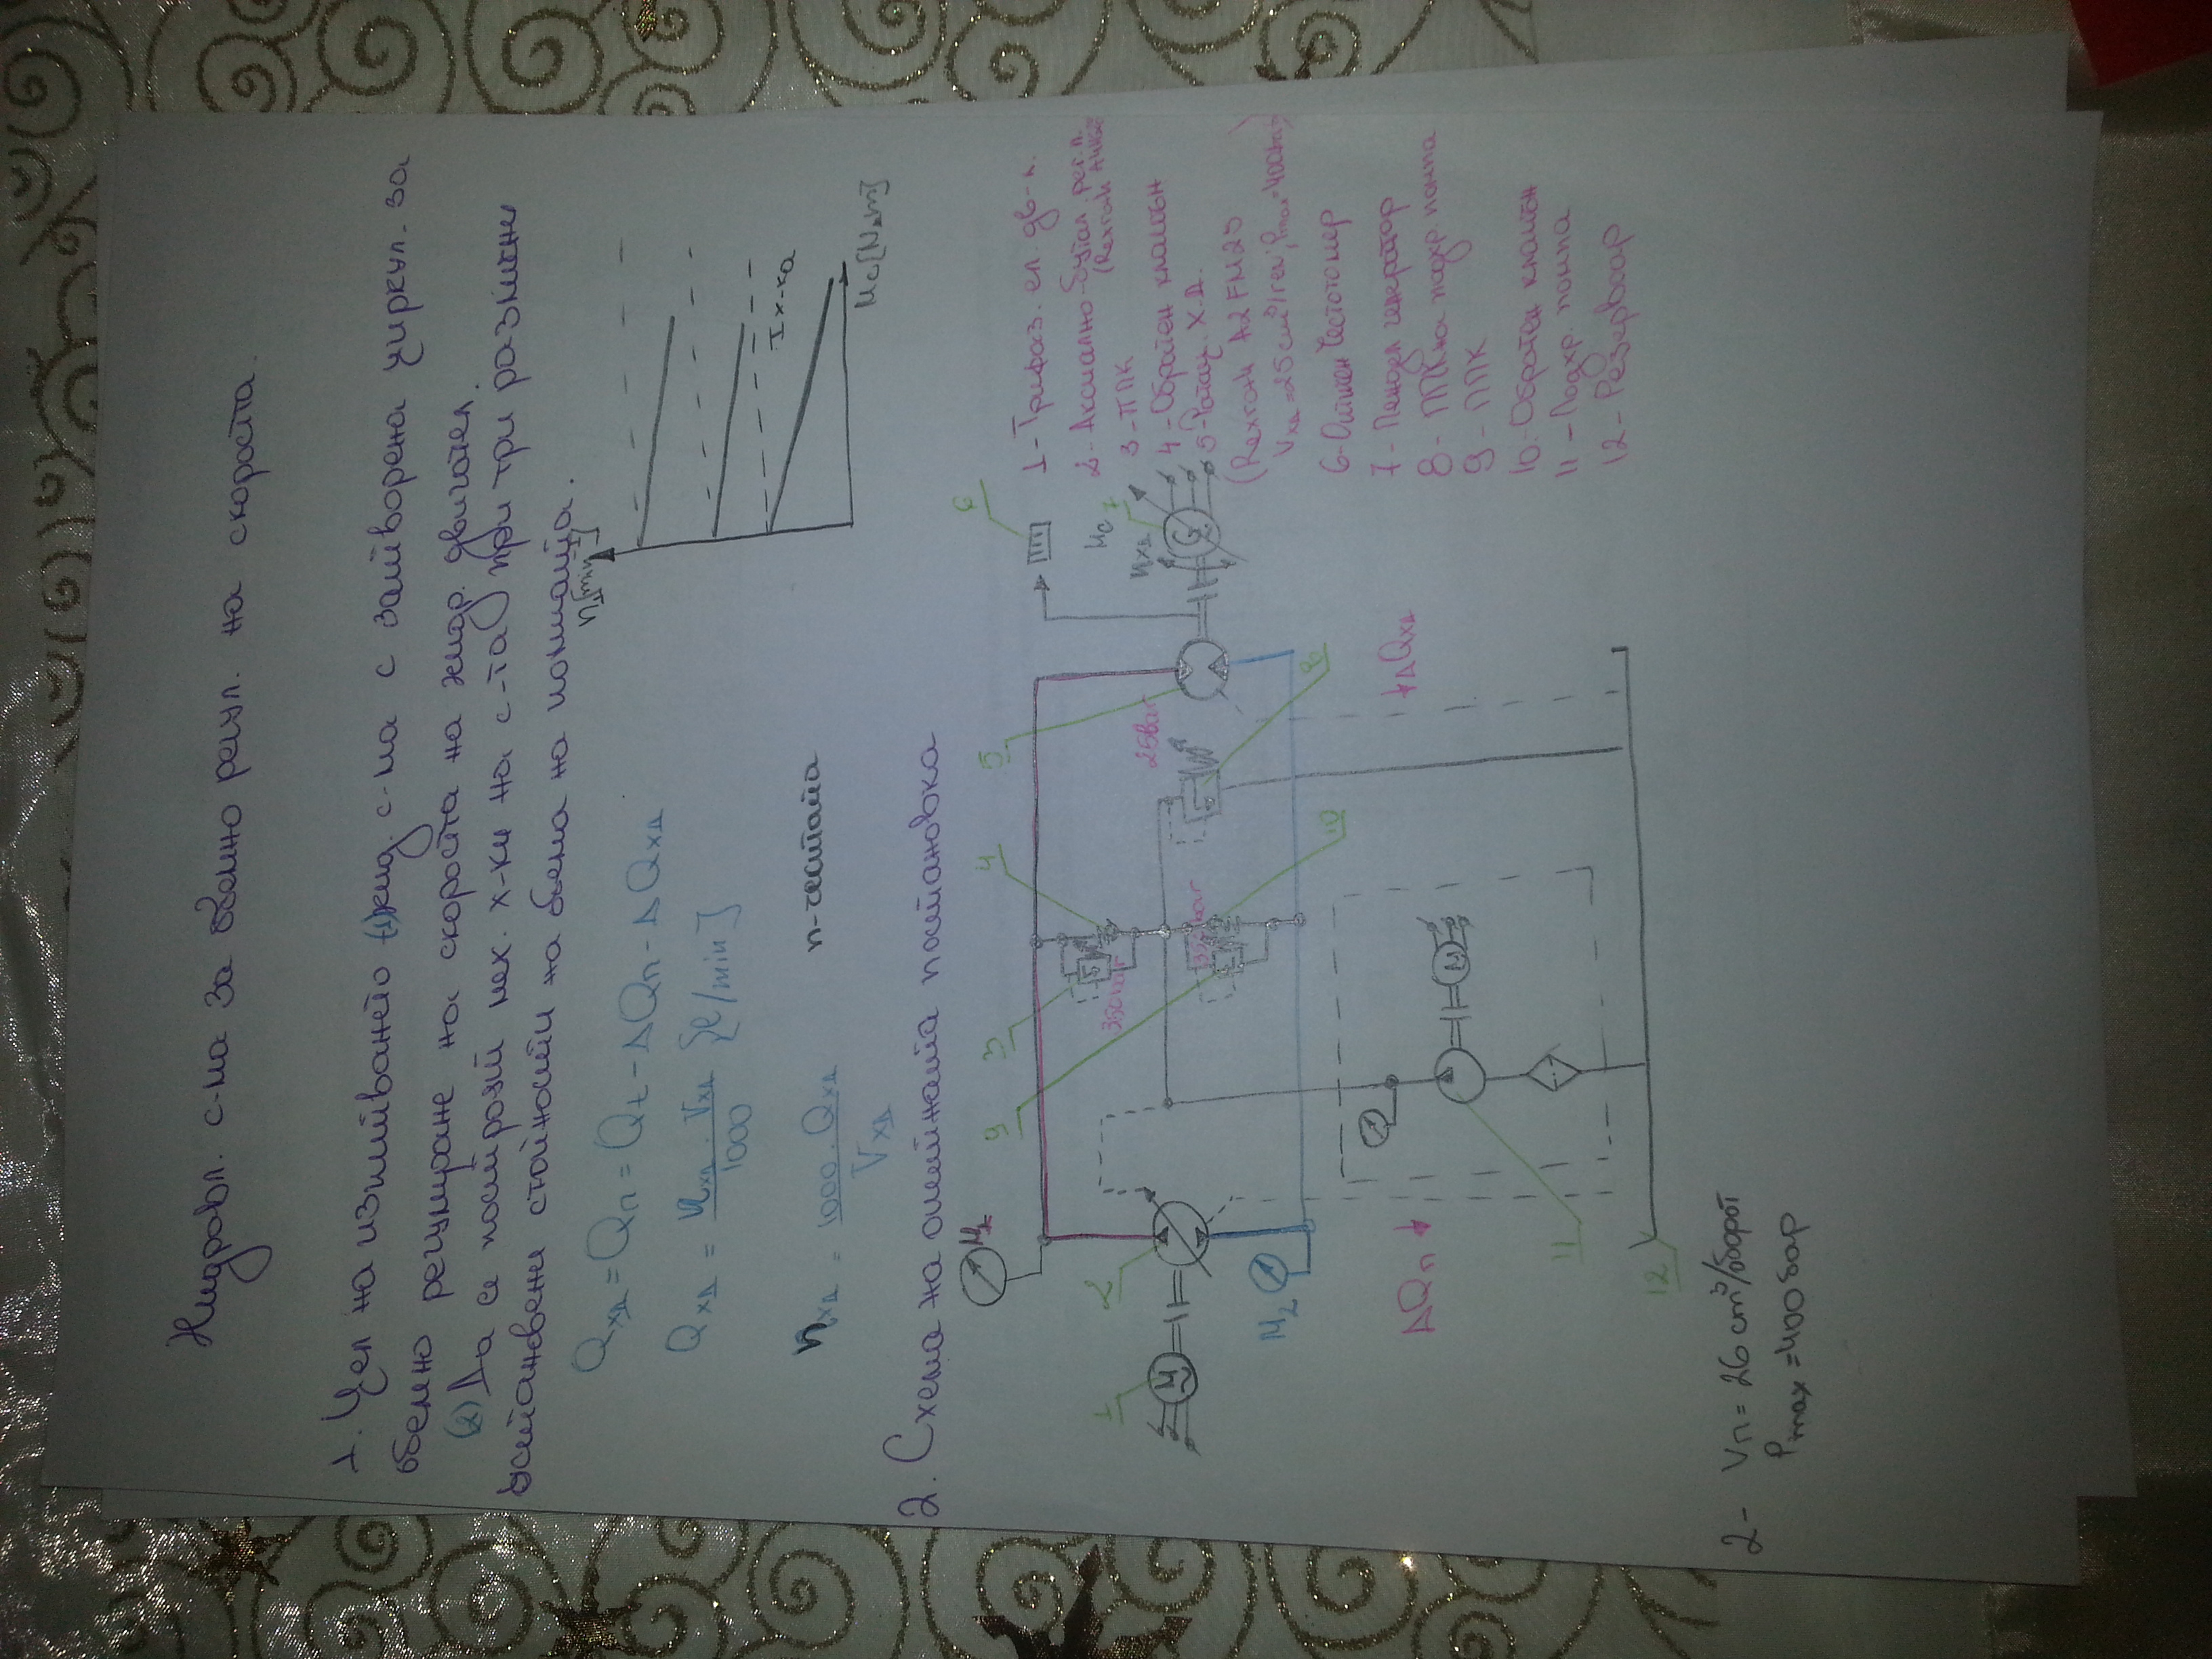 Хидровл. с-ма за обемно регул. на скоростта.
1. Цел на изпитването (1) хид. с-ма с затворена циркул. за
обемно регулиране на скоростта на хидр. двигател.
(2) Да се построят мех. х-ки на с-та при три различни
установени стойности на обема на помпата.
n [min⁻¹]
I х-ка
Mc [N.m]
Qхд = Qп = Qt - ΔQп - ΔQхд
Qхд = nхд . Vхд / 1000 [l/min]
nхд = 1000 . Qхд / Vхд
п-честота
2. Схема на опитната постановка
M1
9
3
4
5
6
1
2
350bar
25bar
Mc
7
nхд
G
M
M2
10
8
ΔQп
ΔQхд
M
11
12
1 - Трифаз. ел. дв-л.
2 - Аксиално-бутал рег. п.
3 - ППК
4 - Обратен клапан
5 - Ротац. Х.Д.
(Rexroth A2FM25
Vхд = 25 cm³/rev; Pmax = 400bar)
6 - честотомер
7 - генератор
8 - ППК на подхр. помпа
9 - ППК
10 - Обратен клапан
11 - Подхр. помпа
12 - Резервоар
2 - Vп = 26 cm³/оборот
Pmax = 400 бар